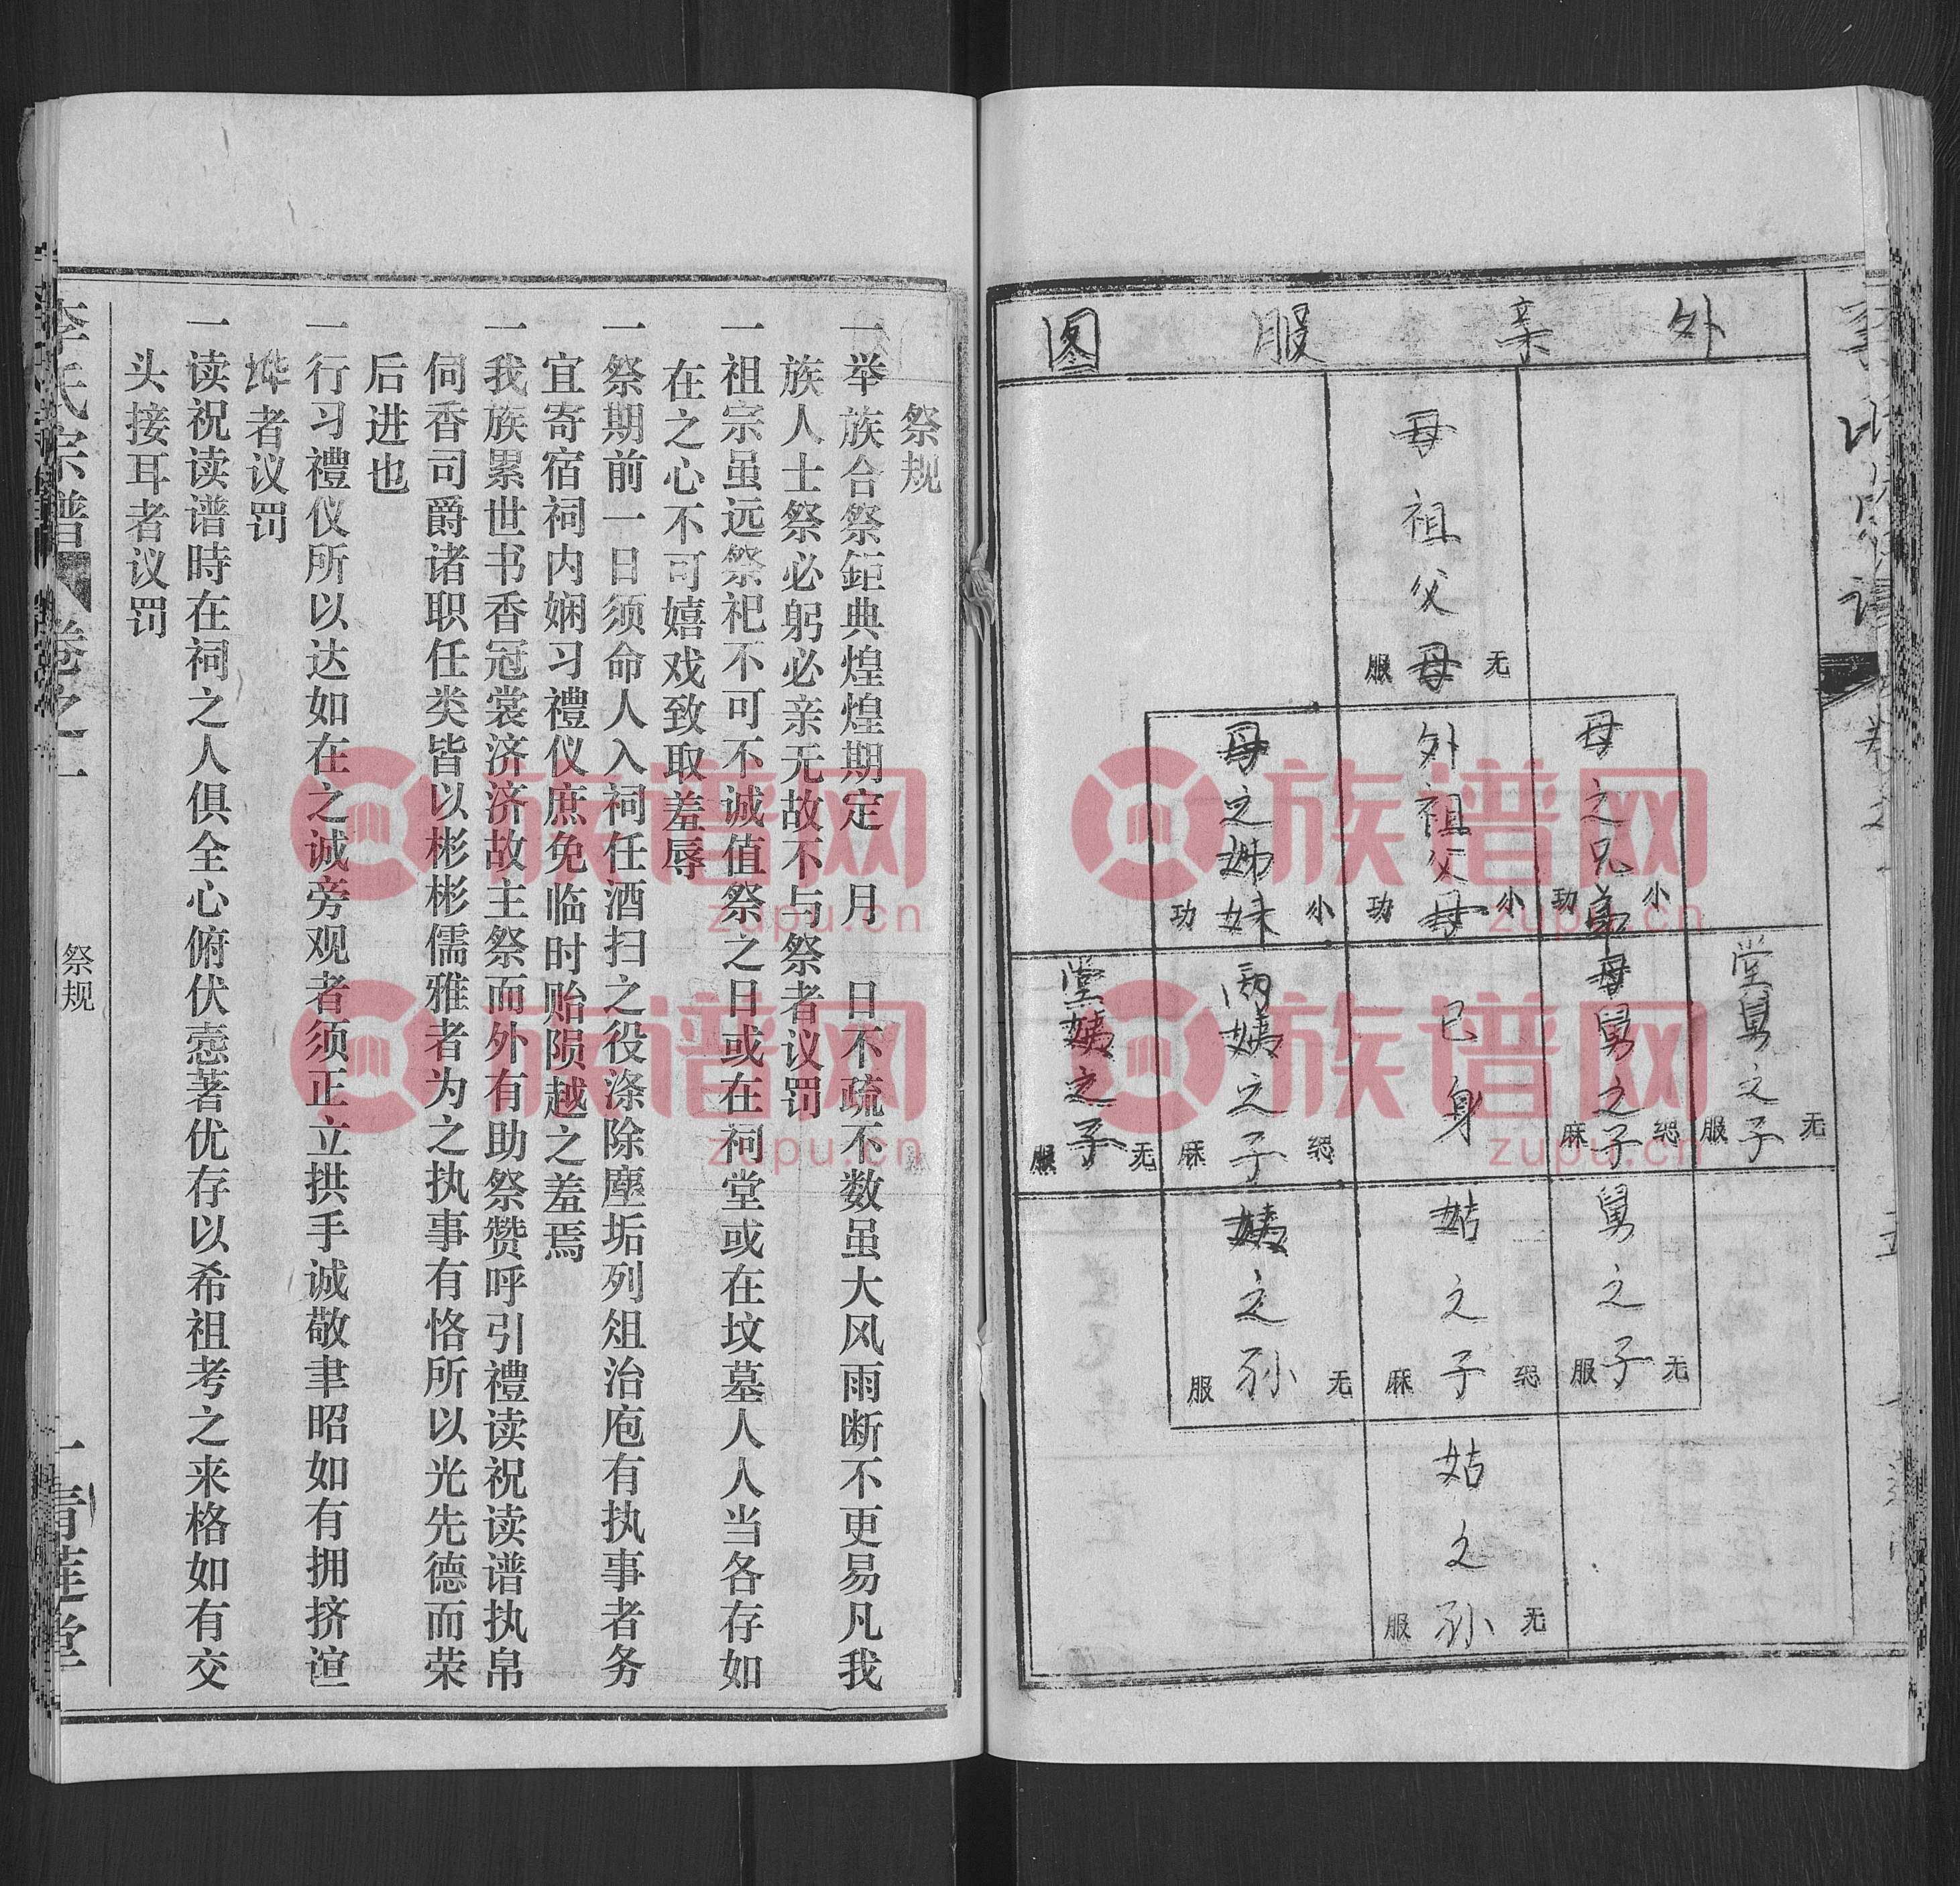 外亲服图
母祖父母
无服
母之兄弟
小功
外祖父母
小功
母之姊妹
小功
堂舅之子
无服
母舅之子
缌麻
已身
两姨之子
缌麻
堂姨之子
无服
舅之子
无服
姑之子
缌麻
姨之孙
无服
姑之孙
无服
祭规
一举族合祭鉅典煌煌期定 月 日不疏不数虽大风雨断不更易凡我
族人士祭必躬必亲无故不与祭者议罚
一祖宗虽远祭祀不可不诚值祭之日或在祠堂或在坟墓人人当各存如
在之心不可嬉戏致取羞辱
一祭期前一日须命人入祠任酒扫之役涤除塵垢列俎治庖有执事者务
宜寄宿祠内娴习禮仪庶免临时贻陨越之羞焉
一我族累世书香冠裳济济故主祭而外有助祭赞呼引禮读祝读谱执帛
伺香司爵诸职任类皆以彬彬儒雅者为之执事有恪所以光先德而荣
后进也
一行习禮仪所以达如在之诚旁观者须正立拱手诚敬聿昭如有拥挤谊
哗者议罚
一读祝读谱時在祠之人俱全心俯伏悫著优存以希祖考之来格如有交
头接耳者议罚
李氏宗谱
卷之一
祭规
青莲堂
族谱网
zupu.cn
族谱网
zupu.cn
族谱网
zupu.cn
族谱网
zupu.cn